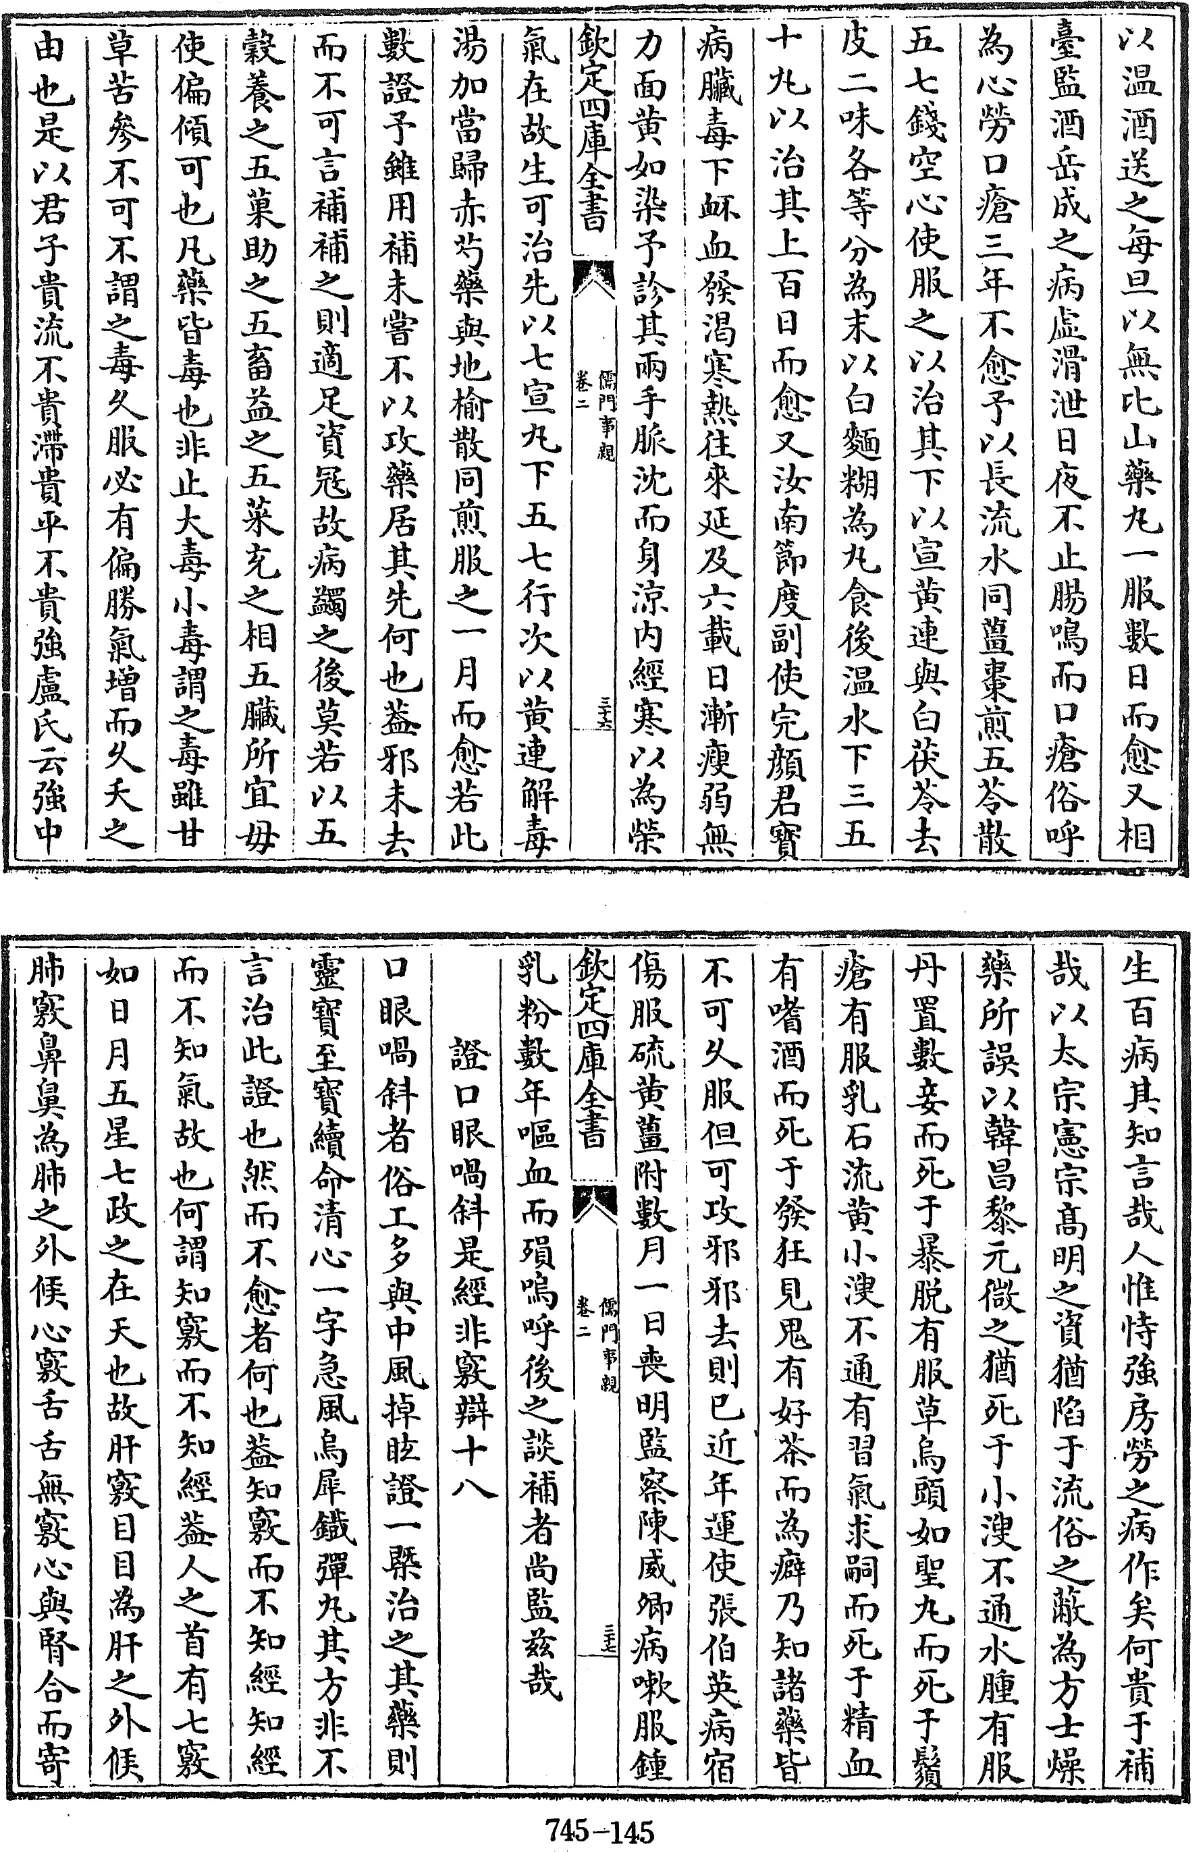 以温酒送之每旦以無比山藥丸一服數日而愈又相
臺監酒岳成之病虛滑泄日夜不止腸鳴而口瘡俗呼
為心勞口瘡三年不愈予以長流水同薑棗煎五苓散
五七錢空心使服之以治其下以宣黄連與白茯苓去
皮二味各等分為末以白麵糊為丸食後温水下三五
十丸以治其上百日而愈又汝南節度副使完顔君寶
病臟毒下衃血發渴寒熱往來延及六載日漸瘦弱無
力面黄如染予診其兩手脈沈而身涼内經寒以為榮
欽定四庫全書
儒門事親
卷二
三十六
氣在故生可治先以七宣丸下五七行次以黄連解毒
湯加當歸赤芍藥與地榆散同煎服之一月而愈若此
數證予雖用補未嘗不以攻藥居其先何也葢邪未去
而不可言補補之則適足資冦故病蠲之後莫若以五
穀養之五菓助之五畜益之五菜充之相五臟所宜毋
使偏傾可也凡藥皆毒也非止大毒小毒謂之毒雖甘
草苦參不可不謂之毒久服必有偏勝氣增而久夭之
由也是以君子貴流不貴滯貴平不貴強盧氏云強中
生百病其知言哉人惟恃強房勞之病作矣何貴于補
哉以太宗憲宗髙明之資猶陷于流俗之蔽為方士燥
藥所誤以韓昌黎元微之猶死于小溲不通水腫有服
丹置數妾而死于暴脱有服草烏頭如聖丸而死于鬚
瘡有服乳石流黄小溲不通有習氣求嗣而死于精血
有嗜酒而死于發狂見鬼有好茶而為癖乃知諸藥皆
不可久服但可攻邪邪去則已近年運使張伯英病宿
傷服硫黄薑附數月一日喪明監察陳威卿病嗽服鍾
欽定四庫全書
儒門事親
卷二
三十七
乳粉數年嘔血而殞嗚呼後之談補者尚監兹哉
證口眼喎斜是經非竅辯十八
口眼喎斜者俗工多與中風掉眩證一槩治之其藥則
靈寶至寶續命清心一字急風烏犀鐵彈丸其方非不
言治此證也然而不愈者何也葢知竅而不知經知經
而不知氣故也何謂知竅而不知經葢人之首有七竅
如日月五星七政之在天也故肝竅目目為肝之外候
肺竅鼻鼻為肺之外候心竅舌舌無竅心與腎合而寄
745-145